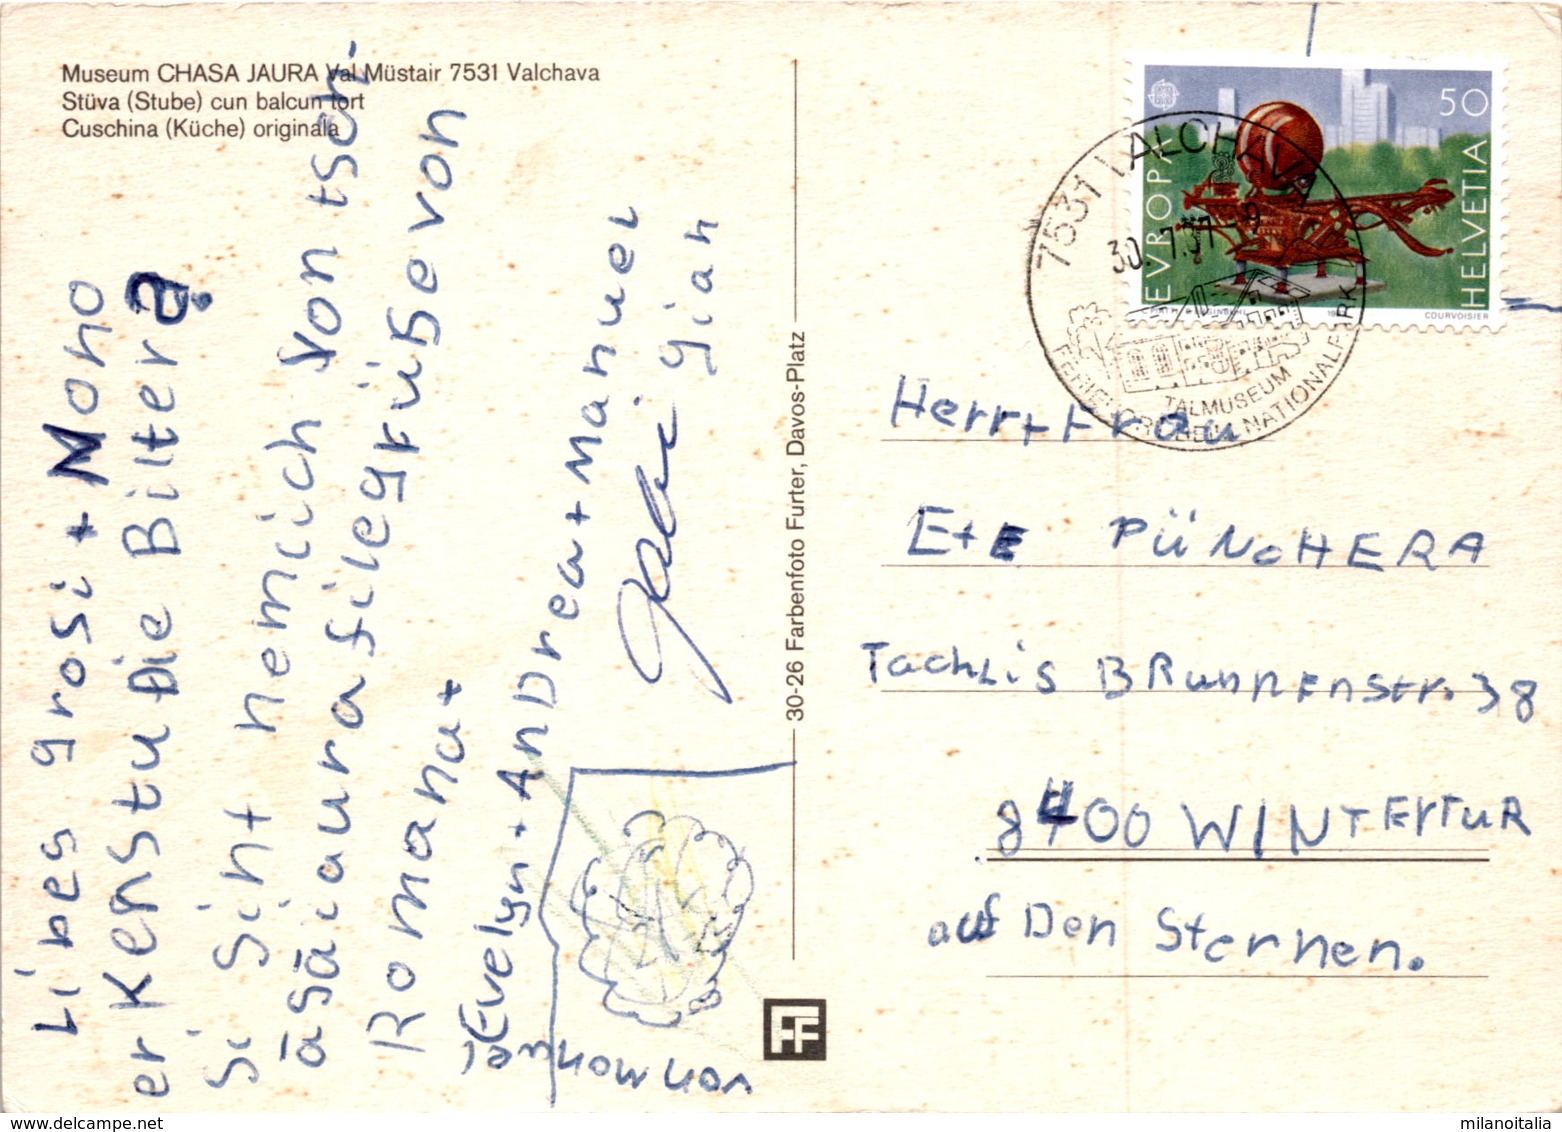 Museum CHASA JAURA Val Müstair 7531 Valchava
Stüva (Stube) cun balcun tort
Cuschina (Küche) originala
Libes grosi + Nono
erkenstu Die Bilter?
Si sint nemich von tsch 
asaiaura file grüße von
Romana +
Evelyn + AnDrea + Manuel
gian
30-26 Farbenfoto Furter, Davos-Platz
FF
EVROPA
50
HELVETIA
COURVOISIER
7531 VALCHAVA
30.-7.87-9
TALMUSEUM
FERIEN ORT BEIM NATIONALPARK
Herr + Frau
E + E PÜNCHERA
TachLis BRunnenstr. 38
8400 WINTErtuR
auf Den Sternen.
milanoitalia